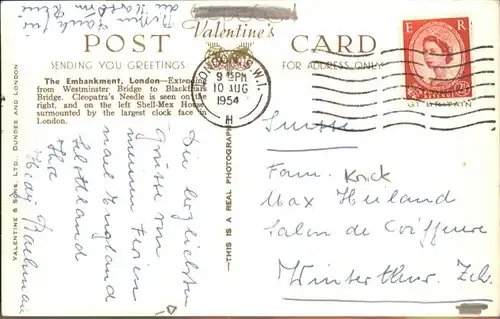 Valentine's
POST CARD
SENDING YOU GREETINGS
FOR ADDRESS ONLY
The Embankment, London—Extending
from Westminster Bridge to Blackfriars
Bridge. Cleopatra's Needle is seen on the
right, and on the left Shell-Mex House
surmounted by the largest clock face in
London.
VALENTINE & SONS, LTD., DUNDEE AND LONDON
—THIS IS A REAL PHOTOGRAPH
LONDON S.W.1.
9 15PM
10 AUG
1954
H
E R
Die herzlichsten
Grüsse von
meinen Ferien
nach England
Schottland
Suisse
Fam. Krick
Max Heiland
Salon de Coiffure
Winterthur. Zch.